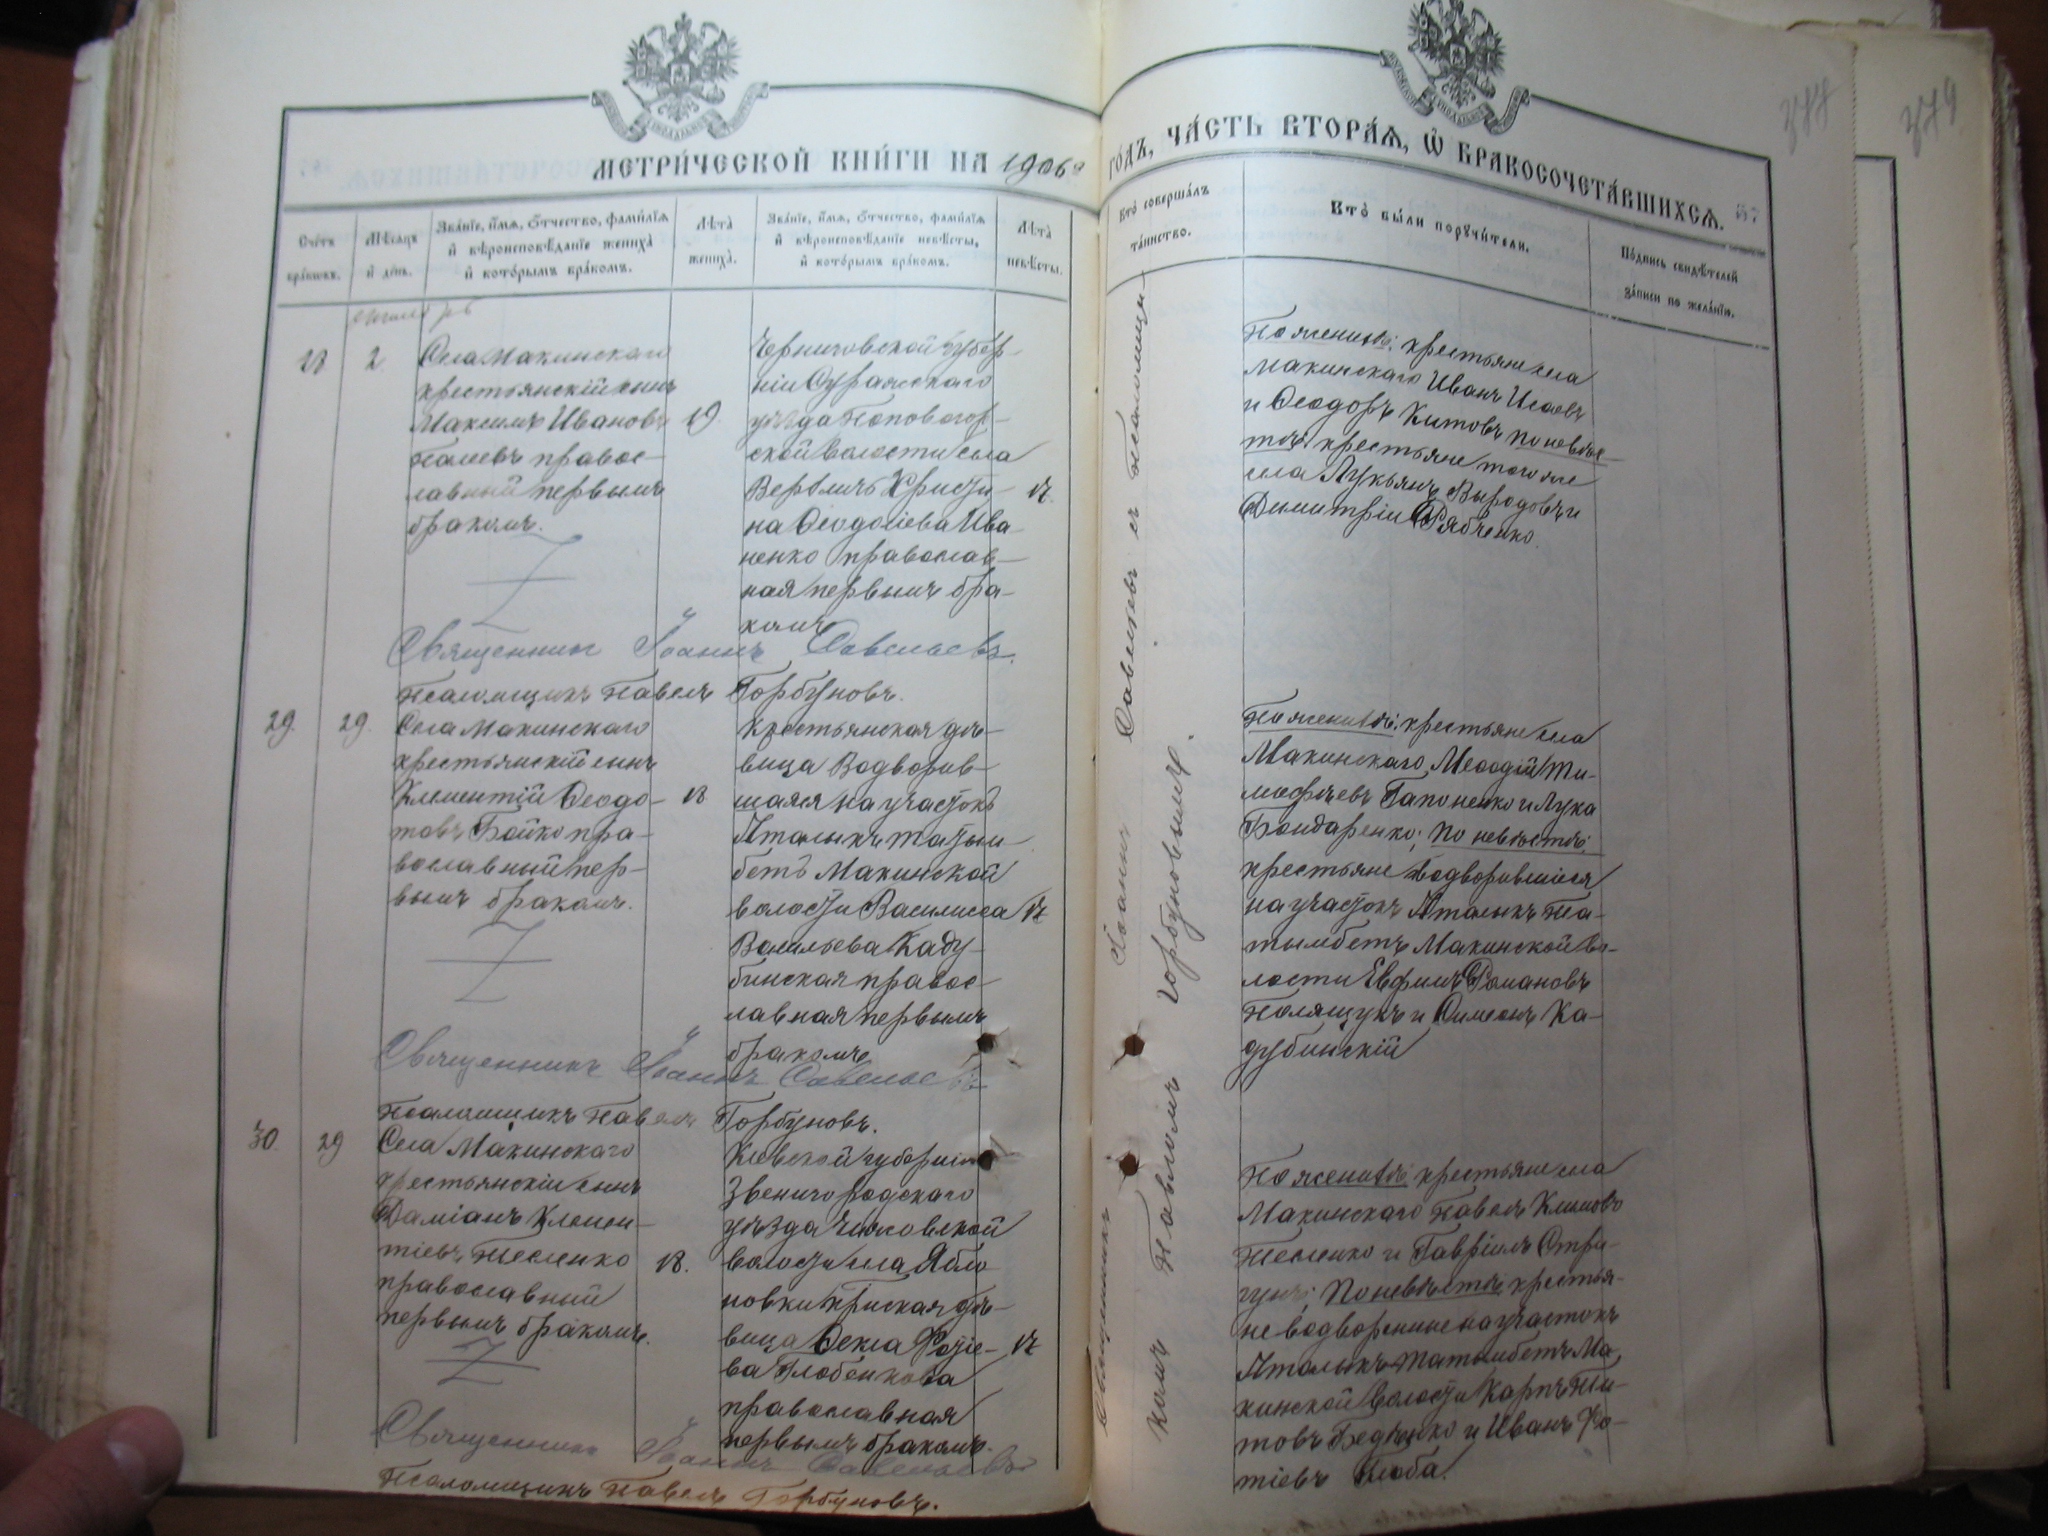 МЕТРИ́ЧЕСКОЙ КНИ́ГИ НА 1906й
ГО́ДЪ, ЧА́СТЬ ВТОРА́Ѧ, Ѡ҆ БРАКОСОЧЕТА́ВШИХСѦ. 57
Сче́тъ бра́ковъ.
Мѣ́сяцъ и҆ де́нь.
Зва́нїе, и҆́мѧ, о҆́тчество, фами́лїѧ и҆ вѣроисповѣ́данїе жениха̀ и҆ кото́рымъ бра́комъ.
Лѣ́та̀ жениха̀.
Зва́нїе, и҆́мѧ, о҆́тчество, фами́лїѧ и҆ вѣроисповѣ́данїе невѣ́сты, и҆ кото́рымъ бра́комъ.
Лѣ́та̀ невѣ́сты.
Кто̀ соверша́лъ та́инство.
Кто̀ бы́ли порꙋчи́тели.
По́дпись свидѣ́телей за́писи по жела́нїю.
28
2
Села Макинскаго
крестьянскій сынъ
Максимъ Ивановъ
правос-
лавный первымъ
бракомъ.
19.
Черниговской губер-
ніи Суражскаго
уѣзда Поповогор-
ской волости села
Христи-
на Ѳеодосіева Ива-
ненко православ-
ная первымъ бра-
комъ
17.
Священникъ Іоаннъ Савельевъ.
Псаломщикъ Павелъ Горбуновъ.
По женихѣ: крестьяне села
Макинскаго Иванъ Исаевъ
и Ѳеодоръ Китовъ по невѣс-
тѣ: крестьяне того же
села Лукьянъ Выродовъ и
Димитрій Рябченко.
29.
29.
Села Макинскаго
крестьянскій сынъ
Климентій Ѳеодо-
товъ Бойко пра-
вославный пер-
вымъ бракомъ.
18
Крестьянская дѣ-
вица Водворив-
шаяся на участокъ
Аталыкъ Татым-
бетъ Макинской
волости Василисса
Васильева Каду-
бинская правос-
лавная первымъ
бракомъ
17
Священникъ Іоаннъ Савельевъ
Псаломщикъ Павелъ Горбуновъ.
По женихѣ: крестьяне села
Макинскаго Меѳодій Ти-
моѳеевъ Гапоненко и Лука
Бондаренко; по невѣстѣ:
крестьяне водворившіеся
на участокъ Аталыкъ Та-
тымбетъ Макинской во-
лости Евфимъ Романовъ
Полящукъ и Симеонъ Ка-
дубинскій
30.
29
Села Макинскаго
крестьянскій сынъ
Даміанъ Клемен-
тіевъ Тесленко
православный
первымъ бракомъ.
18.
Кіевской губерніи
Звенигородскаго
уѣзда
волости села Ябло
новки крнская дѣ-
вица Ѳекла Фотіе-
ва Глобенкова
православная
первымъ бракомъ.
17
Священникъ Іоаннъ Савельевъ
Псаломщикъ Павелъ Горбуновъ.
По женихѣ: крестьяне села
Макинскаго Павелъ Климовъ
Тесленко и Гавріилъ Стри-
гунъ; По невѣстѣ: крестья-
не водворенные на участокъ
Аталыкъ Татымбетъ Ма-
кинской волости Карпъ Ти-
товъ и Иванъ Фо-
тіевъ Глоба.
Священникъ Іоаннъ Савельевъ съ псаломщи-
комъ Павломъ Горбуновымъ.